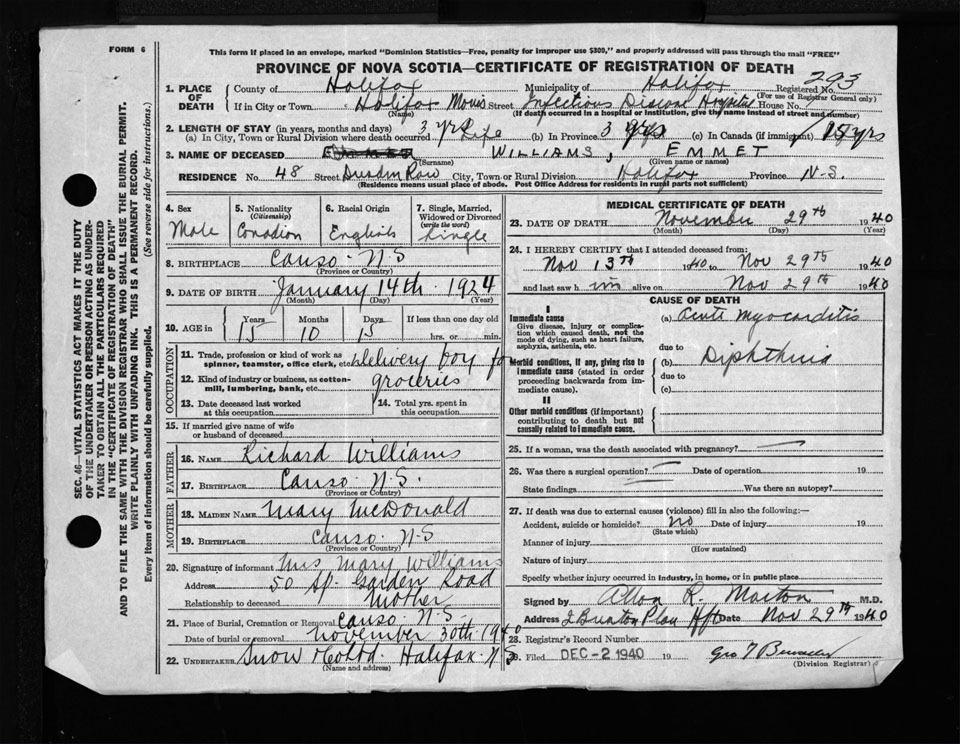 FORM 6
This form if placed in an envelope, marked "Dominion Statistics—Free, penalty for improper use $300," and properly addressed will pass through the mail "FREE"
PROVINCE OF NOVA SCOTIA—CERTIFICATE OF REGISTRATION OF DEATH
1. PLACE OF DEATH
County of Halifax Municipality of Halifax Registered No. 293
(For use of Registrar General only)
If in City or Town Halifax Morris Street Infectious Disease Hospital House No.
(Name) (If death occurred in a hospital or institution, give the name instead of street and number)
2. LENGTH OF STAY (in years, months and days) 3 yrs 3 yrs
(a) In City, Town or Rural Division where death occurred Life (b) In Province (c) In Canada (if immigrant) 15 yrs
3. NAME OF DECEASED WILLIAMS, EMMET
(Surname) (Given name or names)
RESIDENCE No. 48 Street Row City, Town or Rural Division Halifax Province N-S.
(Residence means usual place of abode. Post Office Address for residents in rural parts not sufficient)
4. Sex Male
5. Nationality (Citizenship) Canadian
6. Racial Origin English
7. Single, Married, Widowed or Divorced (write the word) Single
8. BIRTHPLACE Canso N S
(Province or Country)
9. DATE OF BIRTH January 14th 1924
(Month) (Day) (Year)
10. AGE in Years 15 Months 10 Days 15 If less than one day old
hrs. or min.
OCCUPATION
11. Trade, profession or kind of work as spinner, teamster, office clerk, etc. delivery boy for
12. Kind of industry or business, as cotton-mill, lumbering, bank, etc. groceries
13. Date deceased last worked at this occupation
14. Total yrs. spent in this occupation
15. If married give name of wife or husband of deceased
FATHER
16. NAME Richard Williams
17. BIRTHPLACE Canso N.S.
(Province or Country)
MOTHER
18. MAIDEN NAME Mary McDonald
19. BIRTHPLACE Canso N-S
(Province or Country)
20. Signature of informant Mrs Mary Williams
Address 50 Sp. Garden Road
Relationship to deceased Mother
21. Place of Burial, Cremation or Removal Canso N.S.
Date of burial or removal November 30th 1940
22. UNDERTAKER Snow & Co Ltd. Halifax N S
(Name and address)
MEDICAL CERTIFICATE OF DEATH
23. DATE OF DEATH November 29th 1940
(Month) (Day) (Year)
24. I HEREBY CERTIFY that I attended deceased from:
Nov 13th 1940 to Nov 29th 1940
and last saw him alive on Nov 29th 1940
CAUSE OF DEATH
I
Immediate cause
Give disease, injury or complication which caused death, not the mode of dying, such as heart failure, asphyxia, asthenia, etc.
(a) Acute Myocarditis
due to
Morbid conditions, if any, giving rise to immediate cause (stated in order proceeding backwards from immediate cause).
(b) Diphtheria
due to
(c)
II
Other morbid conditions (if important) contributing to death but not causally related to immediate cause.
25. If a woman, was the death associated with pregnancy?
26. Was there a surgical operation? Date of operation 19
State findings Was there an autopsy?
27. If death was due to external causes (violence) fill in also the following:—
Accident, suicide or homicide? no Date of injury 19
(State which)
Manner of injury
(How sustained)
Nature of injury
Specify whether injury occurred in industry, in home, or in public place
Signed by Allan R. Morton M.D.
Address Hfx Date Nov 29th 1940
28. Registrar's Record Number
29. Filed DEC-2 1940 19 Geo T
(Division Registrar)
SEC. 46—VITAL STATISTICS ACT MAKES IT THE DUTY
OF THE UNDERTAKER OR PERSON ACTING AS UNDER-
TAKER TO OBTAIN ALL THE PARTICULARS REQUIRED
IN THE "CERTIFICATE OF REGISTRATION OF DEATH"
AND TO FILE THE SAME WITH THE DIVISION REGISTRAR WHO SHALL ISSUE THE BURIAL PERMIT.
WRITE PLAINLY WITH UNFADING INK. THIS IS A PERMANENT RECORD.
Every item of information should be carefully supplied. (See reverse side for instructions.)